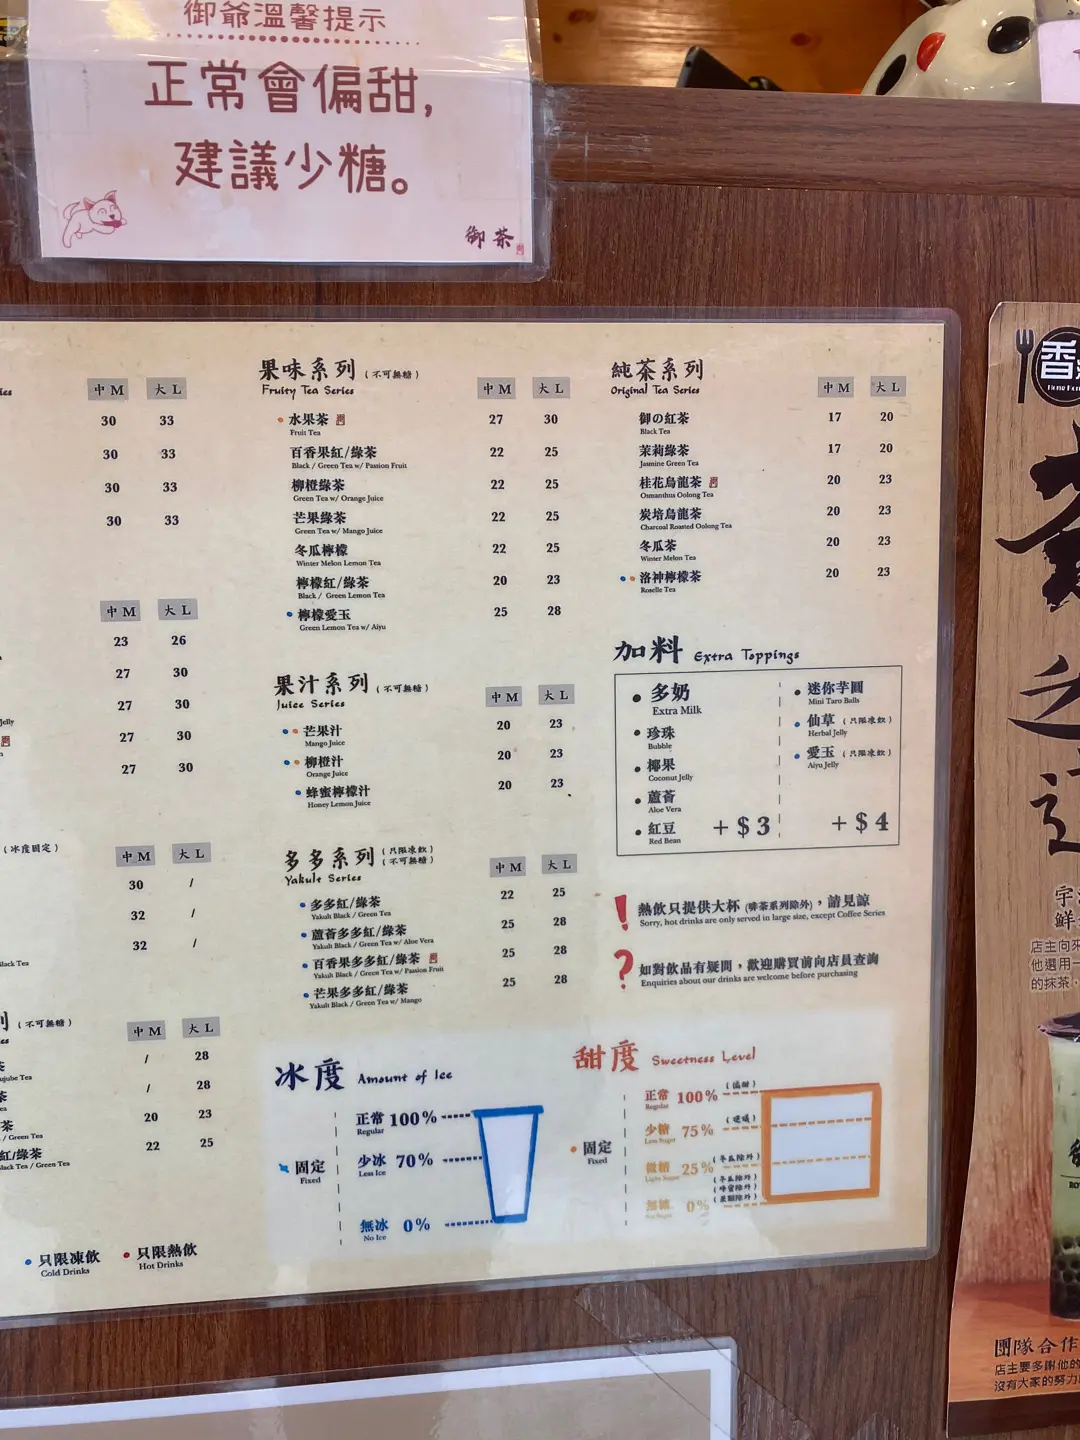 御爺溫馨提示
正常會偏甜,
建議少糖。
御茶
中 M 大 L
30 33
30 33
30 33
30 33
中 M 大 L
23 26
27 30
27 30
Jelly
27 30
27 30
(冰度固定)
中 M 大 L
30 /
32 /
32 /
Black Tea
列 (不可無糖)
中 M 大 L
茶 / 28
Jujube Tea
茶 / 28
茶 20 23
/ Green Tea
紅/綠茶 22 25
Black Tea / Green Tea
只限凍飲 只限熱飲
Cold Drinks Hot Drinks
果味系列 (不可無糖) 中 M 大 L
Fruity Tea Series
水果茶 27 30
Fruit Tea
百香果紅/綠茶 22 25
Black / Green Tea w/ Passion Fruit
柳橙綠茶 22 25
Green Tea w/ Orange Juice
芒果綠茶 22 25
Green Tea w/ Mango Juice
冬瓜檸檬 22 25
Winter Melon Lemon Tea
檸檬紅/綠茶 20 23
Black / Green Lemon Tea
檸檬愛玉 25 28
Green Lemon Tea w/ Aiyu
果汁系列 (不可無糖) 中 M 大 L
Juice Series
芒果汁 20 23
Mango Juice
柳橙汁 20 23
Orange Juice
蜂蜜檸檬汁 20 23
Honey Lemon Juice
多多系列 (只限凍飲) (不可無糖) 中 M 大 L
Yakult Series
多多紅/綠茶 22 25
Yakult Black / Green Tea
蘆薈多多紅/綠茶 25 28
Yakult Black / Green Tea w/ Aloe Vera
百香果多多紅/綠茶 25 28
Yakult Black / Green Tea w/ Passion Fruit
芒果多多紅/綠茶 25 28
Yakult Black / Green Tea w/ Mango
純茶系列 中 M 大 L
Original Tea Series
御の紅茶 17 20
Black Tea
茉莉綠茶 17 20
Jasmine Green Tea
桂花烏龍茶 20 23
Osmanthus Oolong Tea
炭培烏龍茶 20 23
Charcoal Roasted Oolong Tea
冬瓜茶 20 23
Winter Melon Tea
洛神檸檬茶 20 23
Roselle Tea
加料 Extra Toppings
多奶
Extra Milk
珍珠
Bubble
椰果
Coconut Jelly
蘆薈
Aloe Vera
紅豆
Red Bean
+ $ 3
迷你芋圓
Mini Taro Balls
仙草 (只限凍飲)
Herbal Jelly
愛玉 (只限凍飲)
Aiyu Jelly
+ $ 4
! 熱飲只提供大杯 (啡茶系列除外),請見諒
Sorry, hot drinks are only served in large size, except Coffee Series
? 如對飲品有疑問,歡迎購買前向店員查詢
Enquiries about our drinks are welcome before purchasing
冰度 Amount of Ice
固定
Fixed
正常 100%
Regular
少冰 70%
Less Ice
無冰 0%
No Ice
甜度 Sweetness Level
固定
Fixed
正常 100% (偏甜)
Regular
少糖 75% (建議)
Less Sugar
微糖 25% (冬瓜除外)
Light Sugar
無糖 0% (冬瓜除外)
(蜂蜜除外)
No Sugar
香
茶
之
道
字
鮮
店主向來
他選用一
的抹茶,
團隊合作
店主要多謝他的
沒有大家的努力